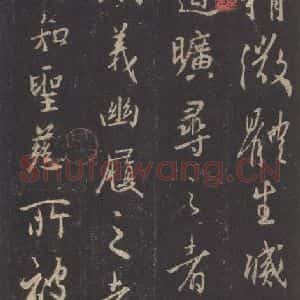 精微體生滅
道曠尋之者
義幽履之者
知聖慈所被
Shufawang.CN